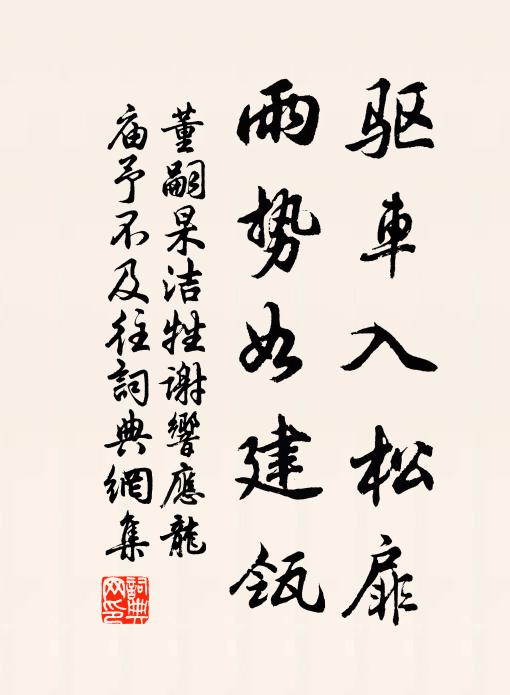 驱車入松扉
雨势如建瓴
董嗣杲洁牲谢響應龍
庙予不及往詞典網集
詞典網印